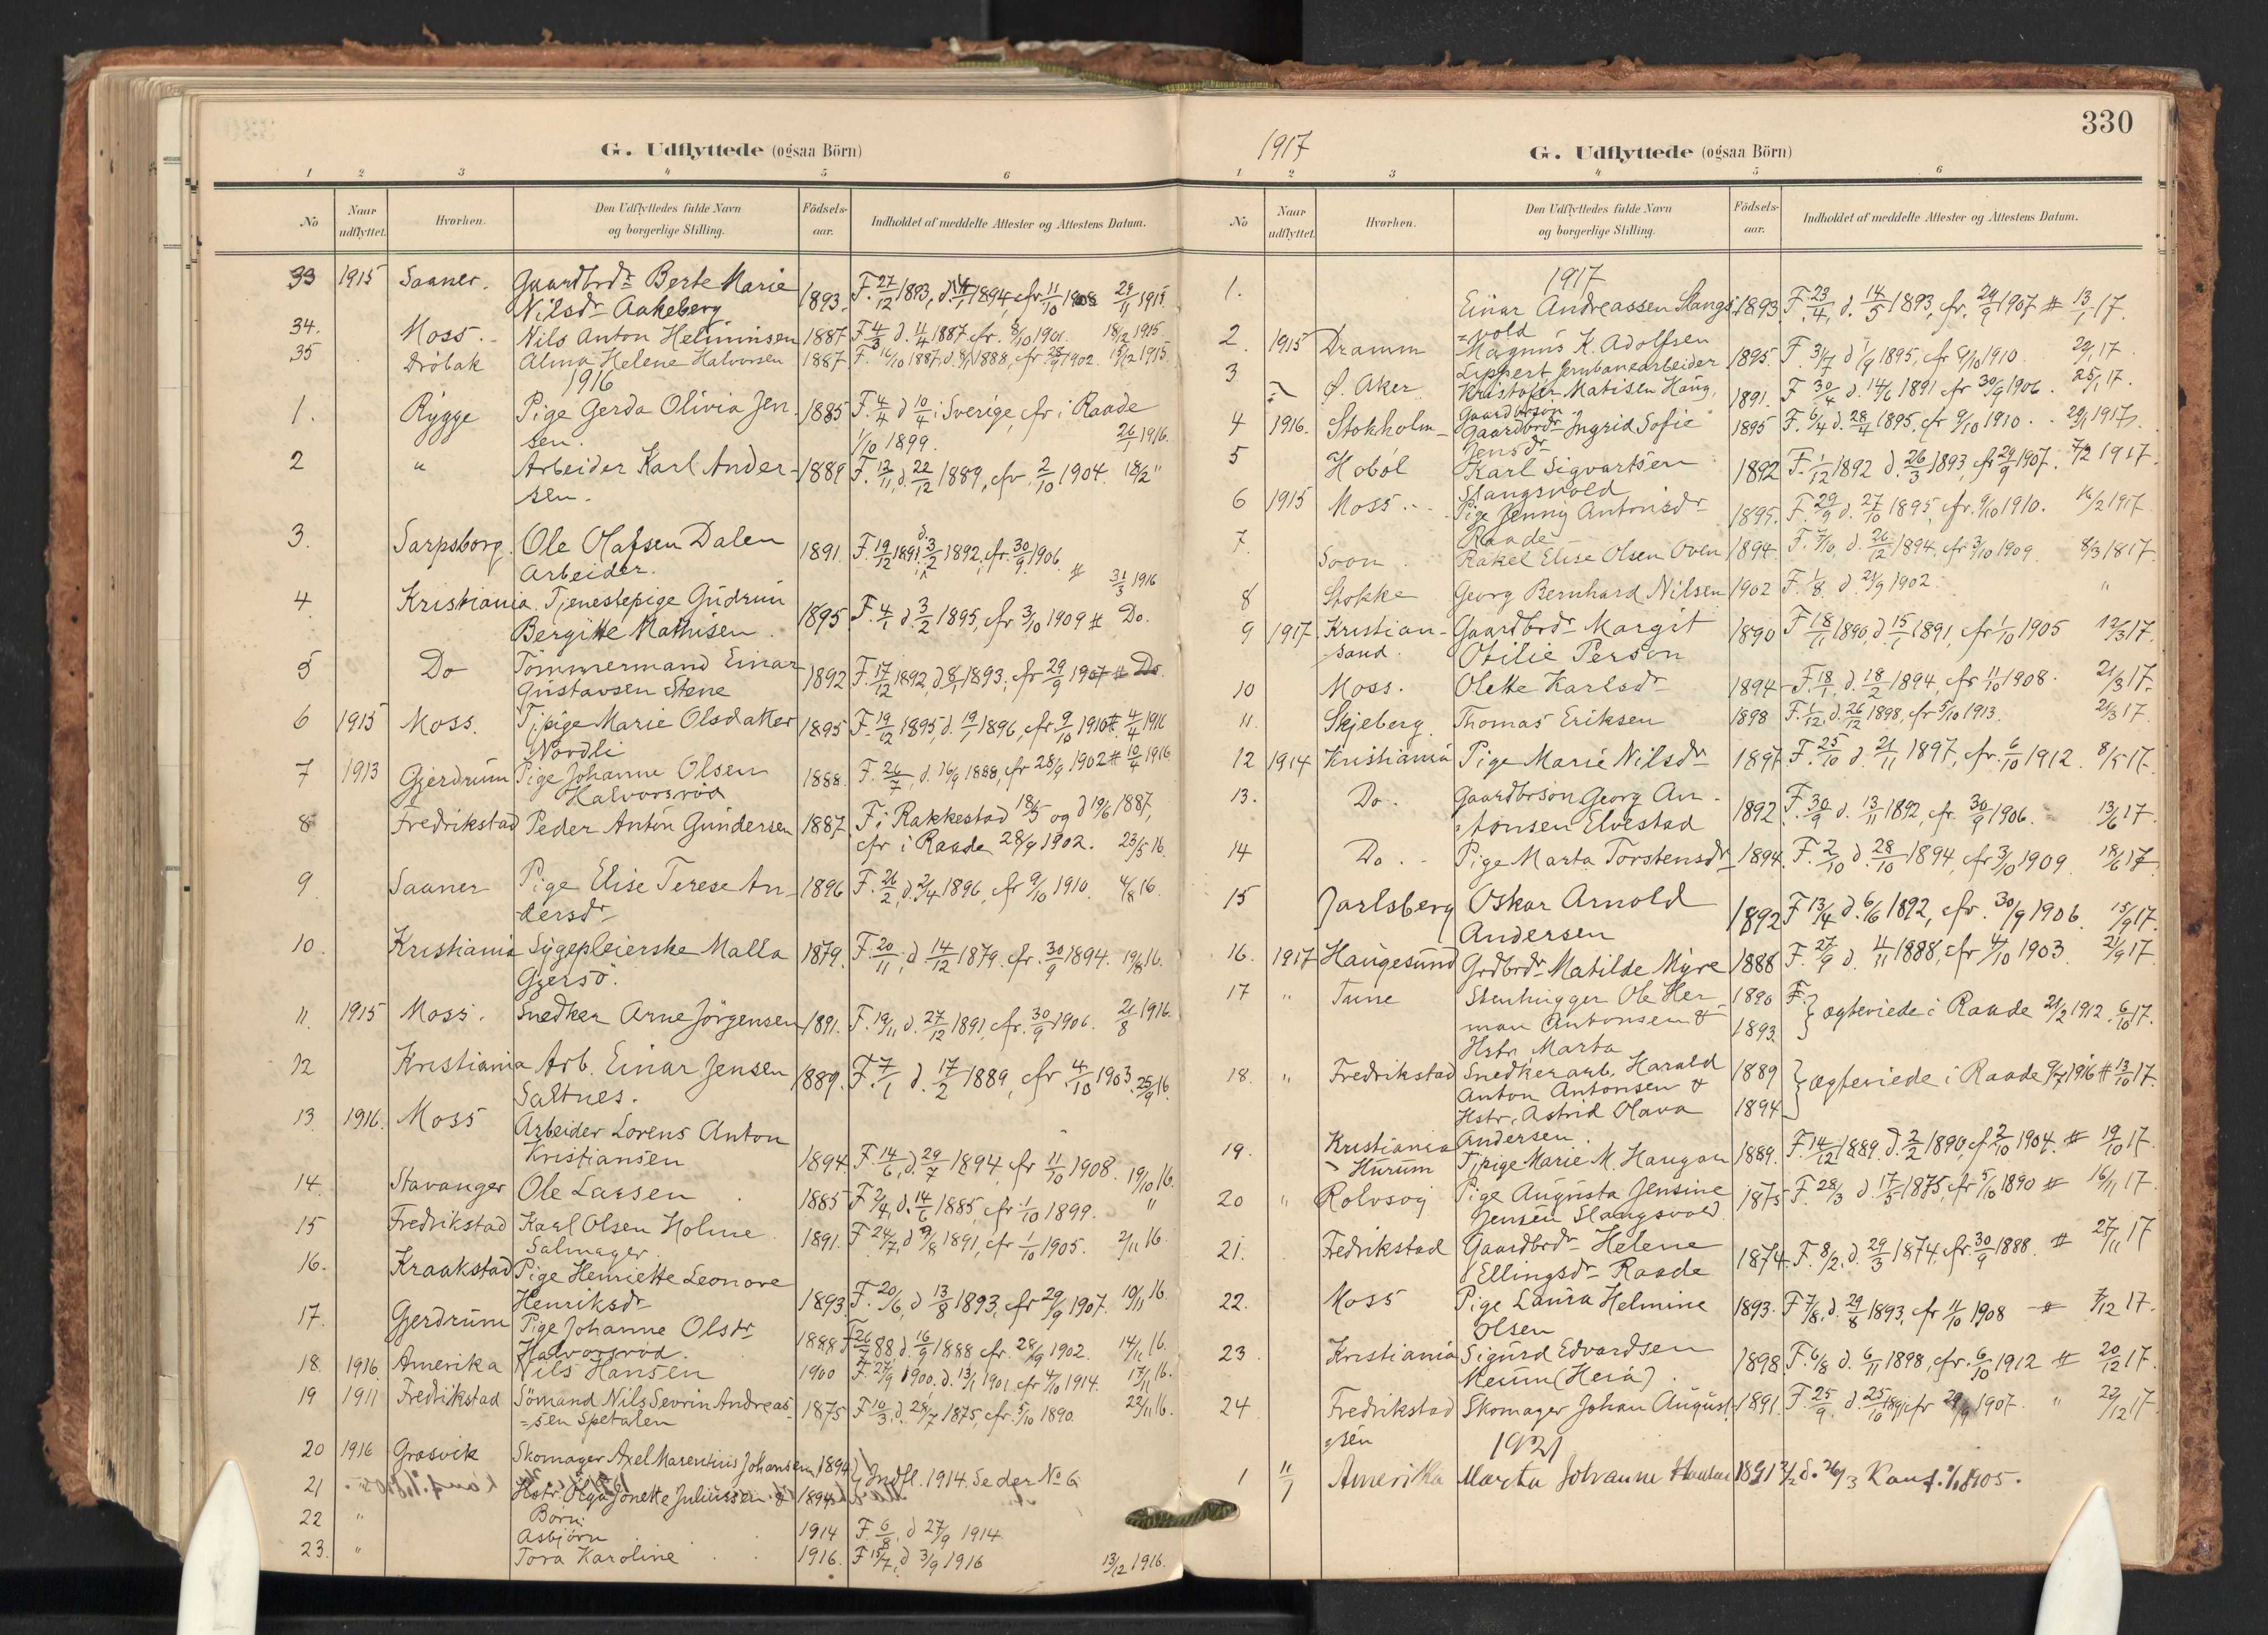 G. Udflyttede (ogsaa Börn)
1 2 3 4 5 6
No
Naar udflyttet.
Hvorhen.
Den Udflyttedes fulde Navn og borgerlige Stilling.
Födsels-aar.
Indholdet af meddelte Attester og Attestens Datum.
33 1915 Saaner. Gaardbrdr Berte Marie
Nilsdr Aakeberg 1893. F. 27/12 1893, d. 1894, cfr 11/10 1908 29/11 1915
34. Moss. Nils Anton Helminsen 1887 F 4/3 d. 11/4 1887 cfr. 8/10 1901. 18/12 1915
35 Dröbak Alma Helene Halvorsen 1887 F. 16/10 1887, d. 8/1 1888, cfr 28/9 1902. 19/12 1915.
1916
1. Rygge Pige Gerda Olivia Jen-
sen. 1885 F. 4/4 d 10/4 i Sverige, cfr i Raade
1/10 1899. 26/1 1916.
2 " Arbeider Karl Ander-
sen. 1889 F. 13/11, d. 22/12 1889, cfr. 2/10 1904. 18/2 "
3. Sarpsborg. Ole Olafsen Dalen
Arbeider. 1891. F. 19/12 1891, d. 3/2 1892, cfr. 30/9 1906. # 31/3 1916
4. Kristiania. Tjenestepige Gudrun
Bergitte Mathisen. 1895 F. 4/1 d. 3/2 1895, cfr 3/10 1909 # Do.
5 Do Tömmermand Einar
Gustavsen Stene 1892 F. 17/12 1892, d 8/1 1893, cfr 29/9 1907 # Do.
6 1915 Moss. Tj.pige Marie Olsdatter
Nordli 1895 F. 19/12 1895, d. 19/1 1896, cfr 9/10 1910 #. 4/4 1916
7 1913 Gjerdrum Pige Johanne Olsen
Halvorsröd 1888. F. 26/7, d. 16/9 1888, cfr 28/9 1902 # 10/4 1916
8 Fredrikstad Peder Anton Gundersen 1887 F. i Rakkestad 18/5 og d 19/6 1887,
cfr i Raade 28/9 1902. 23/5 16.
9 Saaner Pige Elise Terese An-
dersdr 1896 F. 26/2, d. 2/4 1896, cfr 9/10 1910. 4/8 16.
10. Kristiania Sygepleierske Malla
Gjersö. 1879. F. 20/11, d 14/12 1879. cfr. 30/9 1894. 19/8 16.
11. 1915 Moss. Snedker Arne Jörgensen 1891. F. 19/11 d. 27/12 1891, cfr. 30/9 1906. 21/8 1916.
12 Kristiania Arb. Einar Jensen
Saltnes. 1889. F. 7/1 d. 17/2 1889, cfr. 4/10 1903. 25/9 16.
13 1916. Moss Arbeider Lorens Anton
Kristiansen 1894 F. 14/6, d. 29/7 1894, cfr 11/10 1908. 19/10 16.
14. Stavanger Ole Larsen 1885 F 2/4, d. 14/6 1885, cfr 1/10 1899. "
15 Fredrikstad Karl Olsen Holme
Salmager. 1891. F 24/7, d 9/8 1891, cfr 1/10 1905. 2/11 16.
16. Kraakstad Pige Henriette Leonore
Henriksdr 1893 F. 20/6, d 13/8 1893, cfr 29/9 1907. 10/11 16.
17. Gjerdrum Pige Johanne Olsdr
Halvorsröd. 1888 F 26/7 88 d. 16/9 1888 cfr. 28/9 1902. 14/11 16.
18 1916 Amerika Nils Hansen 1900 F. 27/9 1900. d. 13/1 1901. cfr 4/10 1914. 17/11 16.
19 1911 Fredrikstad Sömand Nils Sevrin Andreas-
=sen Spetalen 1875 F 10/3, d. 28/7 1875, cfr. 5/10 1890. 22/11 16.
20 1916 Græsvik Skomager Axel Marentius Johansen 1894 } Indfl. 1914. Se der No 6
21 Hstr Olga Jonette Juliussen & 1894
22 " Börn:
Asbjörn 1914 F. 6/8, d 27/9 1914.
23. " Tora Karoline 1916. F 15/7, d 3/9 1916 13/12 1916.
330
1917
G. Udflyttede (ogsaa Börn)
1 2 3 4 5 6
No
Naar udflyttet.
Hvorhen.
Den Udflyttedes fulde Navn og borgerlige Stilling.
Födsels-aar.
Indholdet af meddelte Attester og Attestens Datum.
1917
1. Einar Andreassen Slangs-
=vold 1893 F. 23/4, d. 14/5 1893, cfr. 29/9 1907 # 13/1 17.
2. 1915 Dramm Magnus K. Adolfsen
Lippert Jernbanearbeider 1895 F. 31/7 d 1/9 1895, cfr 9/10 1910. 29/1 17.
3 Ø. Aker Kristofer Matisen Haug,
Gaardbrson 1891. F 30/4 d. 14/6 1891 cfr 30/9 1906. 25/1 17.
4 1916. Stokholm Gaardbrdr Ingrid Sofie
Jensdr 1895 F. 6/4 d. 28/4 1895, cfr 9/10 1910. 29/1 1917.
5 Hoböl Karl Sigvartsen
Slangsvold 1892 F. 1/12 1892 d. 26/3 1893, cfr 29/9 1907. 7/2 1917.
6 1915 Moss Pige Jenny Antonsdr
Raade 1895. F. 29/9 d. 27/10 1895, cfr. 9/10 1910. 16/2 1917
7. Soon Rakel Elise Olsen Oven 1894. F. 7/10, d. 26/12 1894, cfr 3/10 1909. 8/3 1817.
8 Stokke Georg Bernhard Nilsen 1902 F. 1/8 d. 21/9 1902. "
9 1917 Kristian-
sand. Gaardbrdr Margit
Otilie Person 1890 F 18/11 1890, d 15/1 1891, cfr 1/10 1905 12/3 17.
10 Moss. Olette Karlsdr 1894 F. 18/1, d. 18/2 1894, cfr 11/10 1908. 21/3 17.
11. Skjeberg. Thomas Eriksen 1898 F. 1/12, d. 26/12 1898, cfr 5/10 1913. 21/3 17.
12 1914 Kristiania Pige Marie Nilsdr 1897 F. 25/10 d. 21/11 1897, cfr. 6/10 1912. 8/5 17.
13. Do. Gaardbrson Georg An-
tonsen Elvestad 1892 F. 30/9 d. 13/11 1892, cfr. 30/9 1906. 13/6 17.
14 Do. Pige Marta Torstensdr 1894. F. 2/10 d. 28/10 1894, cfr 3/10 1909 18/6 17
15 Jarlsberg Oskar Arnold
Andersen 1892 F 13/4 d. 6/6 1892, cfr. 30/9 1906. 15/9 17.
16. 1917 Haugesund Grdbrdr Matilde Myre 1888 F. 27/9 d. 11/11 1888, cfr 4/10 1903. 21/9 17.
17 " Tune Stenhugger Ole Her-
man Antonsen &
Hstr Marta 1890 1893 F. } ægteviede i Raade 21/2 1912. 6/10 17.
18. " Fredrikstad Snedkerarb. Harald
Anton Antonsen &
Hstr. Astrid Olava
Andersen. 1889 1894 } ægteviede i Raade 9/7 1916 # 13/10 17.
19. Kristiania
Hurum Tj.pige Marie M. Haugan 1889. F. 14/12 1889. d. 2/2 1890, cf 2/10 1904. # 19/10 17.
20 " Rolvsøy Pige Augusta Jensine
Jensen Slangsvold 1875 F. 28/3 d. 17/5 1875, cfr 5/10 1890 # 16/11 17.
21. Fedrikstad Gaardbrdr Helene
Ellingsdr Raade 1874. F. 8/2, d. 29/3 1874, cfr. 30/9 1888. # 27/11 17
22. Moss Pige Laura Helmine
Olsen 1893. F 7/8, d. 29/8 1893, cfr 11/10 1908 # 7/12 17.
23 Kristiania Sigurd Edvardsen
Meum (Heia). 1898. F. 6/8 d. 6/11 1898, cfr. 6/10 1912 # 20/12 17.
24 Fredrikstad Skomager Johan August-
sen 1891. F. 25/9 d. 25/10 1891 cfr 29/9 1907. " 22/12 17
1921
1 11/1 Amerika Marta Johanne 1891 d. 26/3 1905.